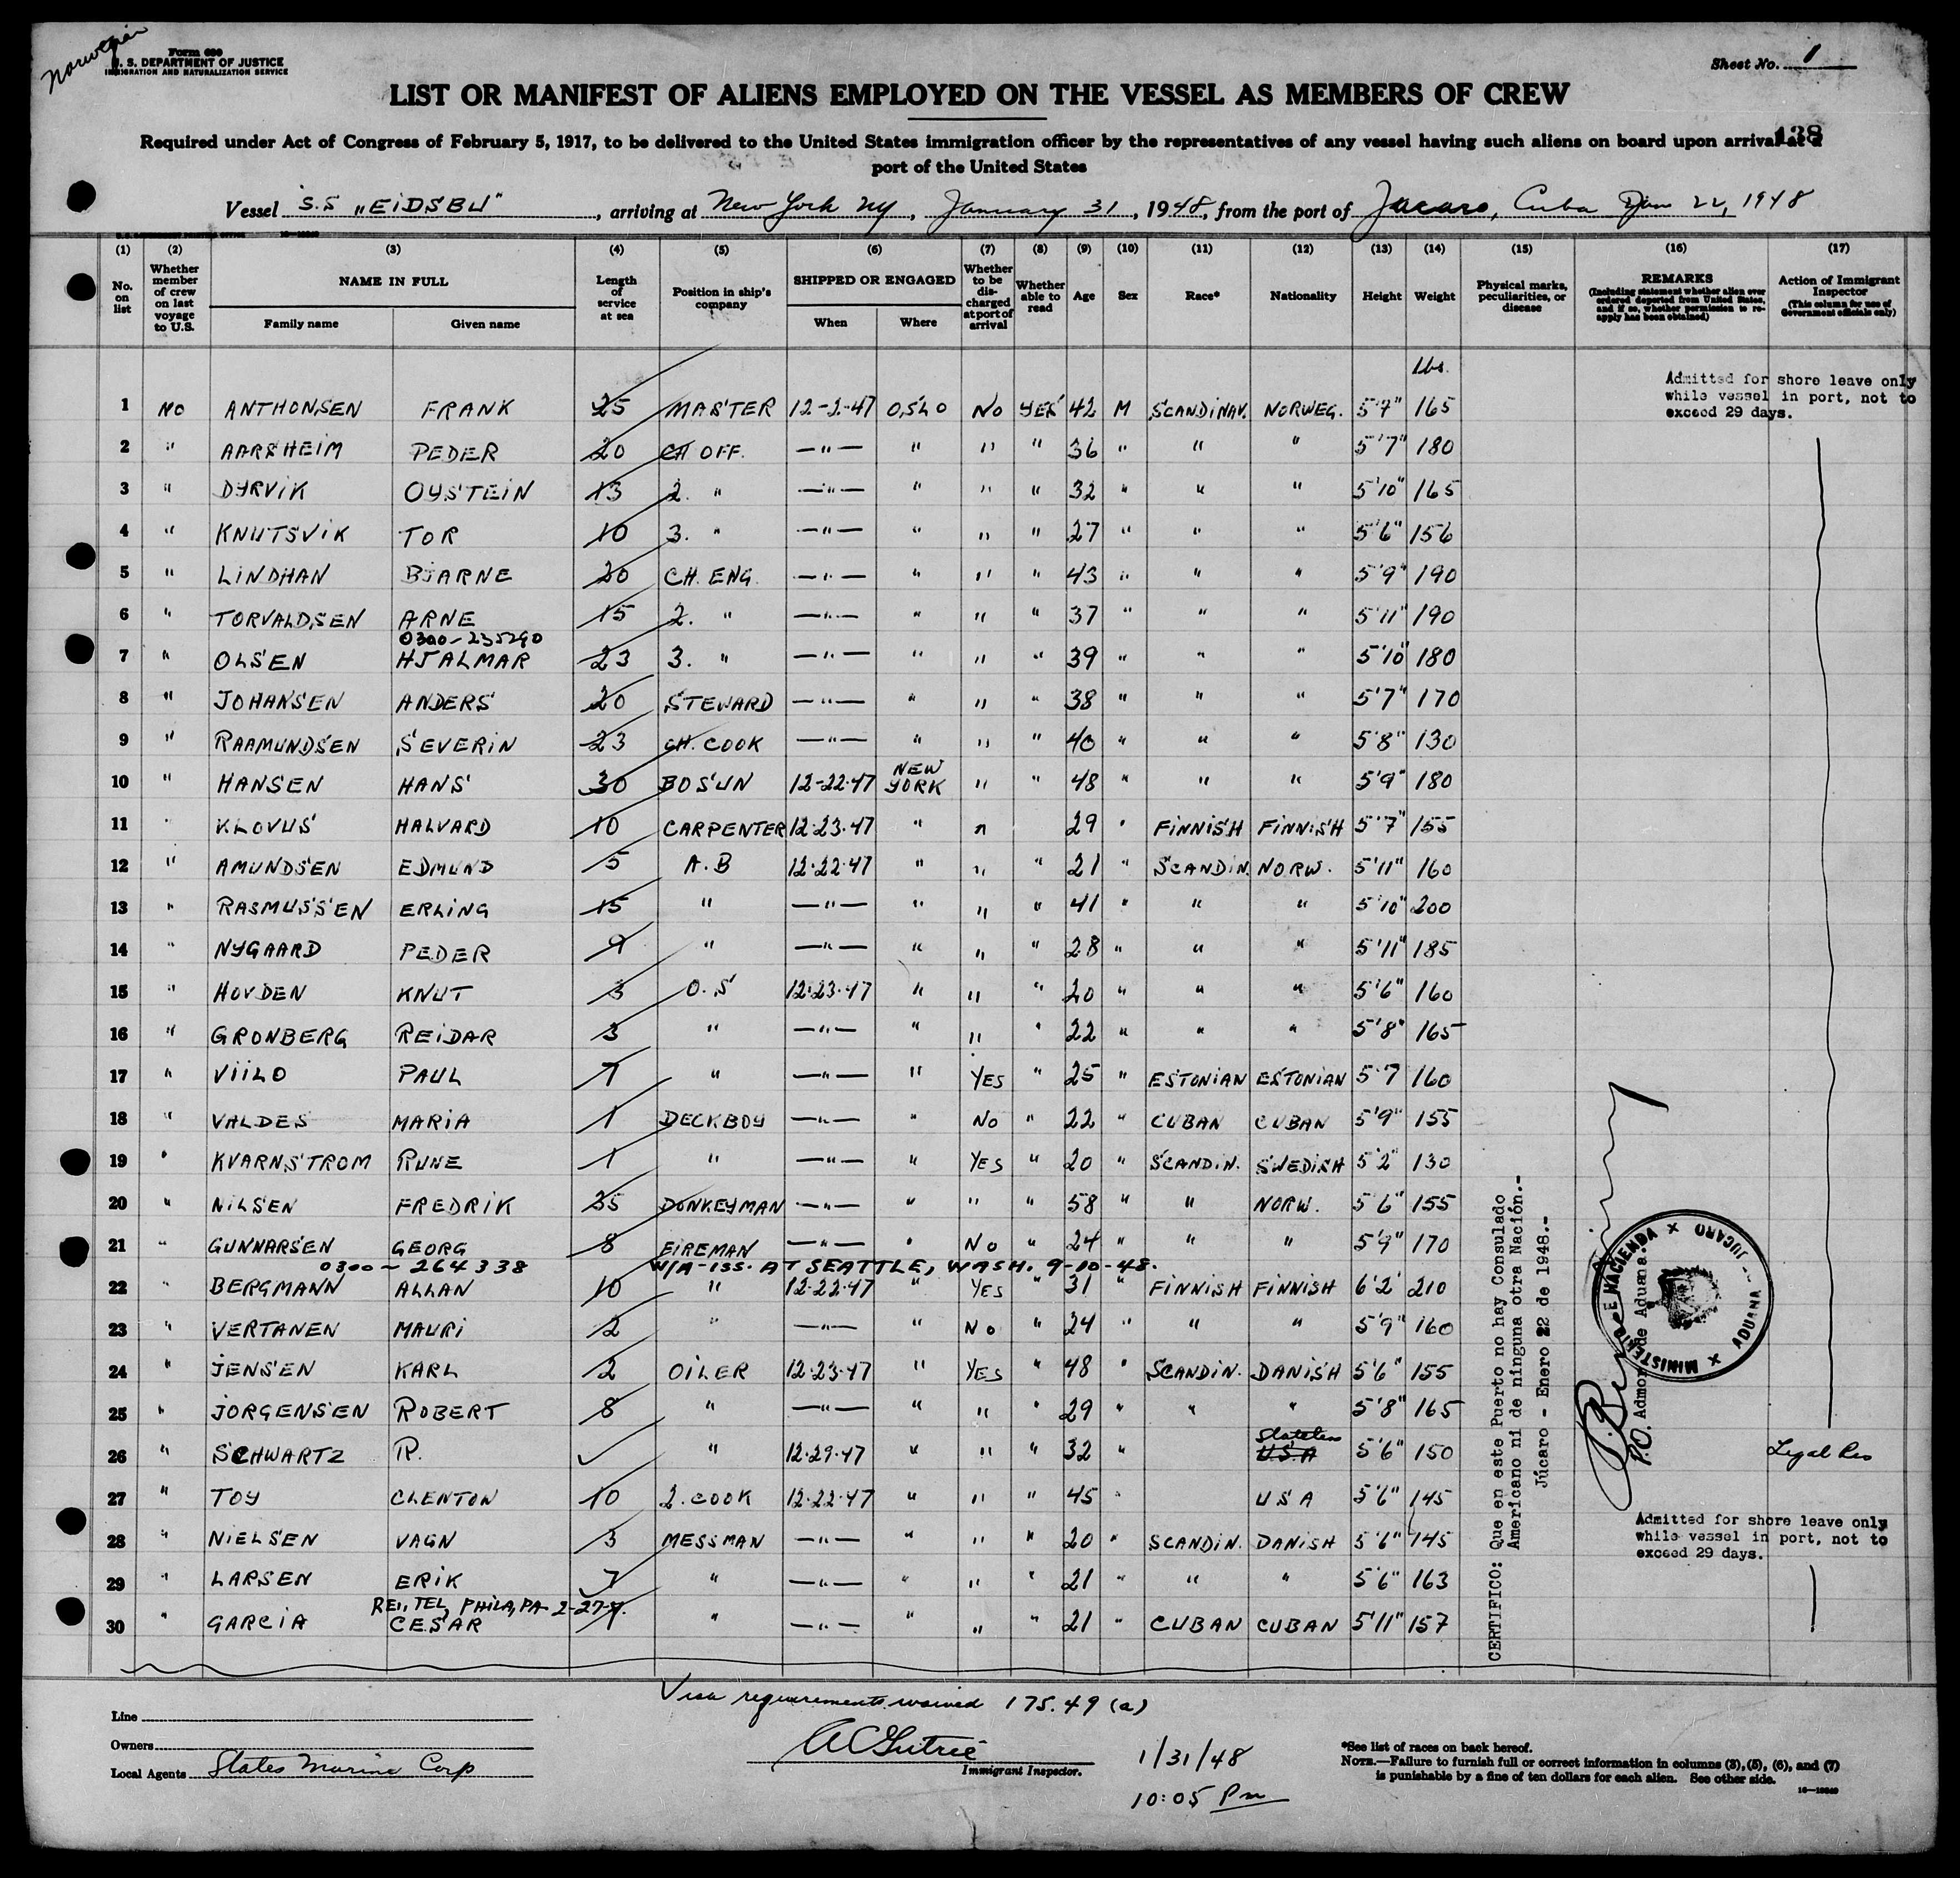 Norwegian
Form 680
U. S. DEPARTMENT OF JUSTICE
IMMIGRATION AND NATURALIZATION SERVICE
Sheet No. 1
LIST OR MANIFEST OF ALIENS EMPLOYED ON THE VESSEL AS MEMBERS OF CREW
138
Required under Act of Congress of February 5, 1917, to be delivered to the United States immigration officer by the representatives of any vessel having such aliens on board upon arrival at a
port of the United States
Vessel S.S „EIDSBU", arriving at New York NY, January 31, 1948, from the port of Jucaro, Cuba Jan 22, 1948
(1) (2) (3) (4) (5) (6) (7) (8) (9) (10) (11) (12) (13) (14) (15) (16) (17)
No. on list
Whether member of crew on last voyage to U.S.
NAME IN FULL
Family name
Given name
Length of service at sea
Position in ship's company
SHIPPED OR ENGAGED
When
Where
Whether to be discharged at port of arrival
Whether able to read
Age
Sex
Race*
Nationality
Height
Weight
Physical marks, peculiarities, or disease
REMARKS
(Including statement whether alien ever ordered deported from United States, and if so, whether permission to reapply has been obtained)
Action of Immigrant Inspector
(This column for use of Government officials only)
lbs.
Admitted for shore leave only
while vessel in port, not to
exceed 29 days.
1 NO ANTHONSEN FRANK 25 MASTER 12-2-47 OSLO NO YES 42 M SCANDINAV. NORWEG. 5'7" 165
2 " AARSHEIM PEDER 20 CH OFF. —"— " " " 36 " " " 5'7" 180
3 " DYRVIK OYSTEIN 13 2. " —"— " " " 32 " " " 5'10" 165
4 " KNUTSVIK TOR 10 3. " —"— " " " 27 " " " 5'6" 156
5 " LINDHAN BJARNE 20 CH. ENG. —"— " " " 43 " " " 5'9" 190
6 " TORVALDSEN ARNE 15 2. " —"— " " " 37 " " " 5'11" 190
0300-235290
7 " OLSEN HJALMAR 23 3. " —"— " " " 39 " " " 5'10" 180
8 " JOHANSEN ANDERS 20 STEWARD —"— " " " 38 " " " 5'7" 170
9 " RAAMUNDSEN SEVERIN 23 CH. COOK —"— " " " 40 " " " 5'8" 130
10 " HANSEN HANS 30 BOSUN 12-22-47 NEW YORK " " 48 " " " 5'9" 180
11 " KLOVUS HALVARD 10 CARPENTER 12-23-47 " " 29 " FINNISH FINNISH 5'7" 155
12 " AMUNDSEN EDMUND 5 A.B 12-22-47 " " " 21 " SCANDIN. NORW. 5'11" 160
13 " RASMUSSEN ERLING 15 " —"— " " " 41 " " " 5'10" 200
14 " NYGAARD PEDER 9 " —"— " " " 28 " " " 5'11" 185
15 " HOVDEN KNUT 3 O.S 12-23-47 " " " 20 " " " 5'6" 160
16 " GRONBERG REIDAR 3 " —"— " " " 22 " " " 5'8" 165
17 " VIILO PAUL 7 " —"— " YES " 25 " ESTONIAN ESTONIAN 5'7 160
18 " VALDES MARIA 1 DECKBOY —"— " NO " 22 " CUBAN CUBAN 5'9" 155
19 " KVARNSTROM RUNE 1 " —"— " YES " 20 " SCANDIN. SWEDISH 5'2" 130
20 " NILSEN FREDRIK 35 DONKEYMAN —"— " " " 58 " " NORW. 5'6" 155
21 " GUNNARSEN GEORG 8 FIREMAN —"— " NO " 24 " " " 5'9" 170
0300-264338 W/A-ISS. AT SEATTLE, WASH. 9-10-48.
22 " BERGMANN ALLAN 10 " 12-22-47 " YES " 31 " FINNISH FINNISH 6'2' 210
23 " VERTANEN MAURI 2 " —"— " NO " 24 " " " 5'9" 160
24 " JENSEN KARL 2 OILER 12-23-47 " YES " 48 " SCANDIN. DANISH 5'6" 155
25 " JORGENSEN ROBERT 8 " —"— " " " 29 " " " 5'8" 165
26 " SCHWARTZ R. " 12-29-47 " " " 32 " U.S.A 5'6" 150 Legal Res
27 " TOY CLENTON 10 2. COOK 12-22-47 " " " 45 " USA 5'6" 145
28 " NIELSEN VAGN 3 MESSMAN —"— " " " 20 " SCANDIN. DANISH 5'6" 145
29 " LARSEN ERIK 7 " —"— " " " 21 " " " 5'6" 163
REI, TEL, PHILA, PA
30 " GARCIA CESAR 1 " —"— " " " 21 " CUBAN CUBAN 5'11" 157
Admitted for shore leave only
while vessel in port, not to
exceed 29 days.
CERTIFICO: Que en este Puerto no hay Consulado
Americano ni de ninguna otra Nación.-
Júcaro - Enero 22 de 1948.-
P.O. Admor de Aduana.
MINISTERIO DE HACIENDA
ADUANA JUCARO
Visa requirements waived 175.49 (a)
Line
Owners
Local Agents States Marine Corp
Immigrant Inspector.
1/31/48
10:05 Pm
*See list of races on back hereof.
NOTE.—Failure to furnish full or correct information in columns (3), (5), (6), and (7)
is punishable by a fine of ten dollars for each alien. See other side.